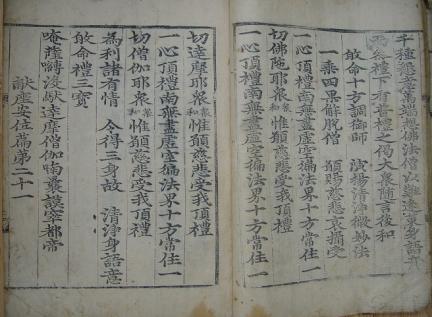 千種萬端佛法僧以難逢身語
禮下有普禮之偈大衆隨言後和
敢命十方調御師　演揚清淨微妙法
一乘四果解脫僧　願賜慈悲哀攝受
一心頂禮南無盡虛空徧法界十方常住一
切佛陀耶衆和惟願慈悲受我頂禮
一心頂禮南無盡虛空徧法界十方常住一
切達摩耶衆和惟願慈悲受我頂禮
一心頂禮南無盡虛空徧法界十方常住一
切僧伽耶衆和惟願慈悲受我頂禮
為利諸有情　令得三身故　清淨身語意
敢命禮三寶
唵薩嚩沒䭾達摩僧伽喃曩謨窣都帝
献座安位篇第二十一